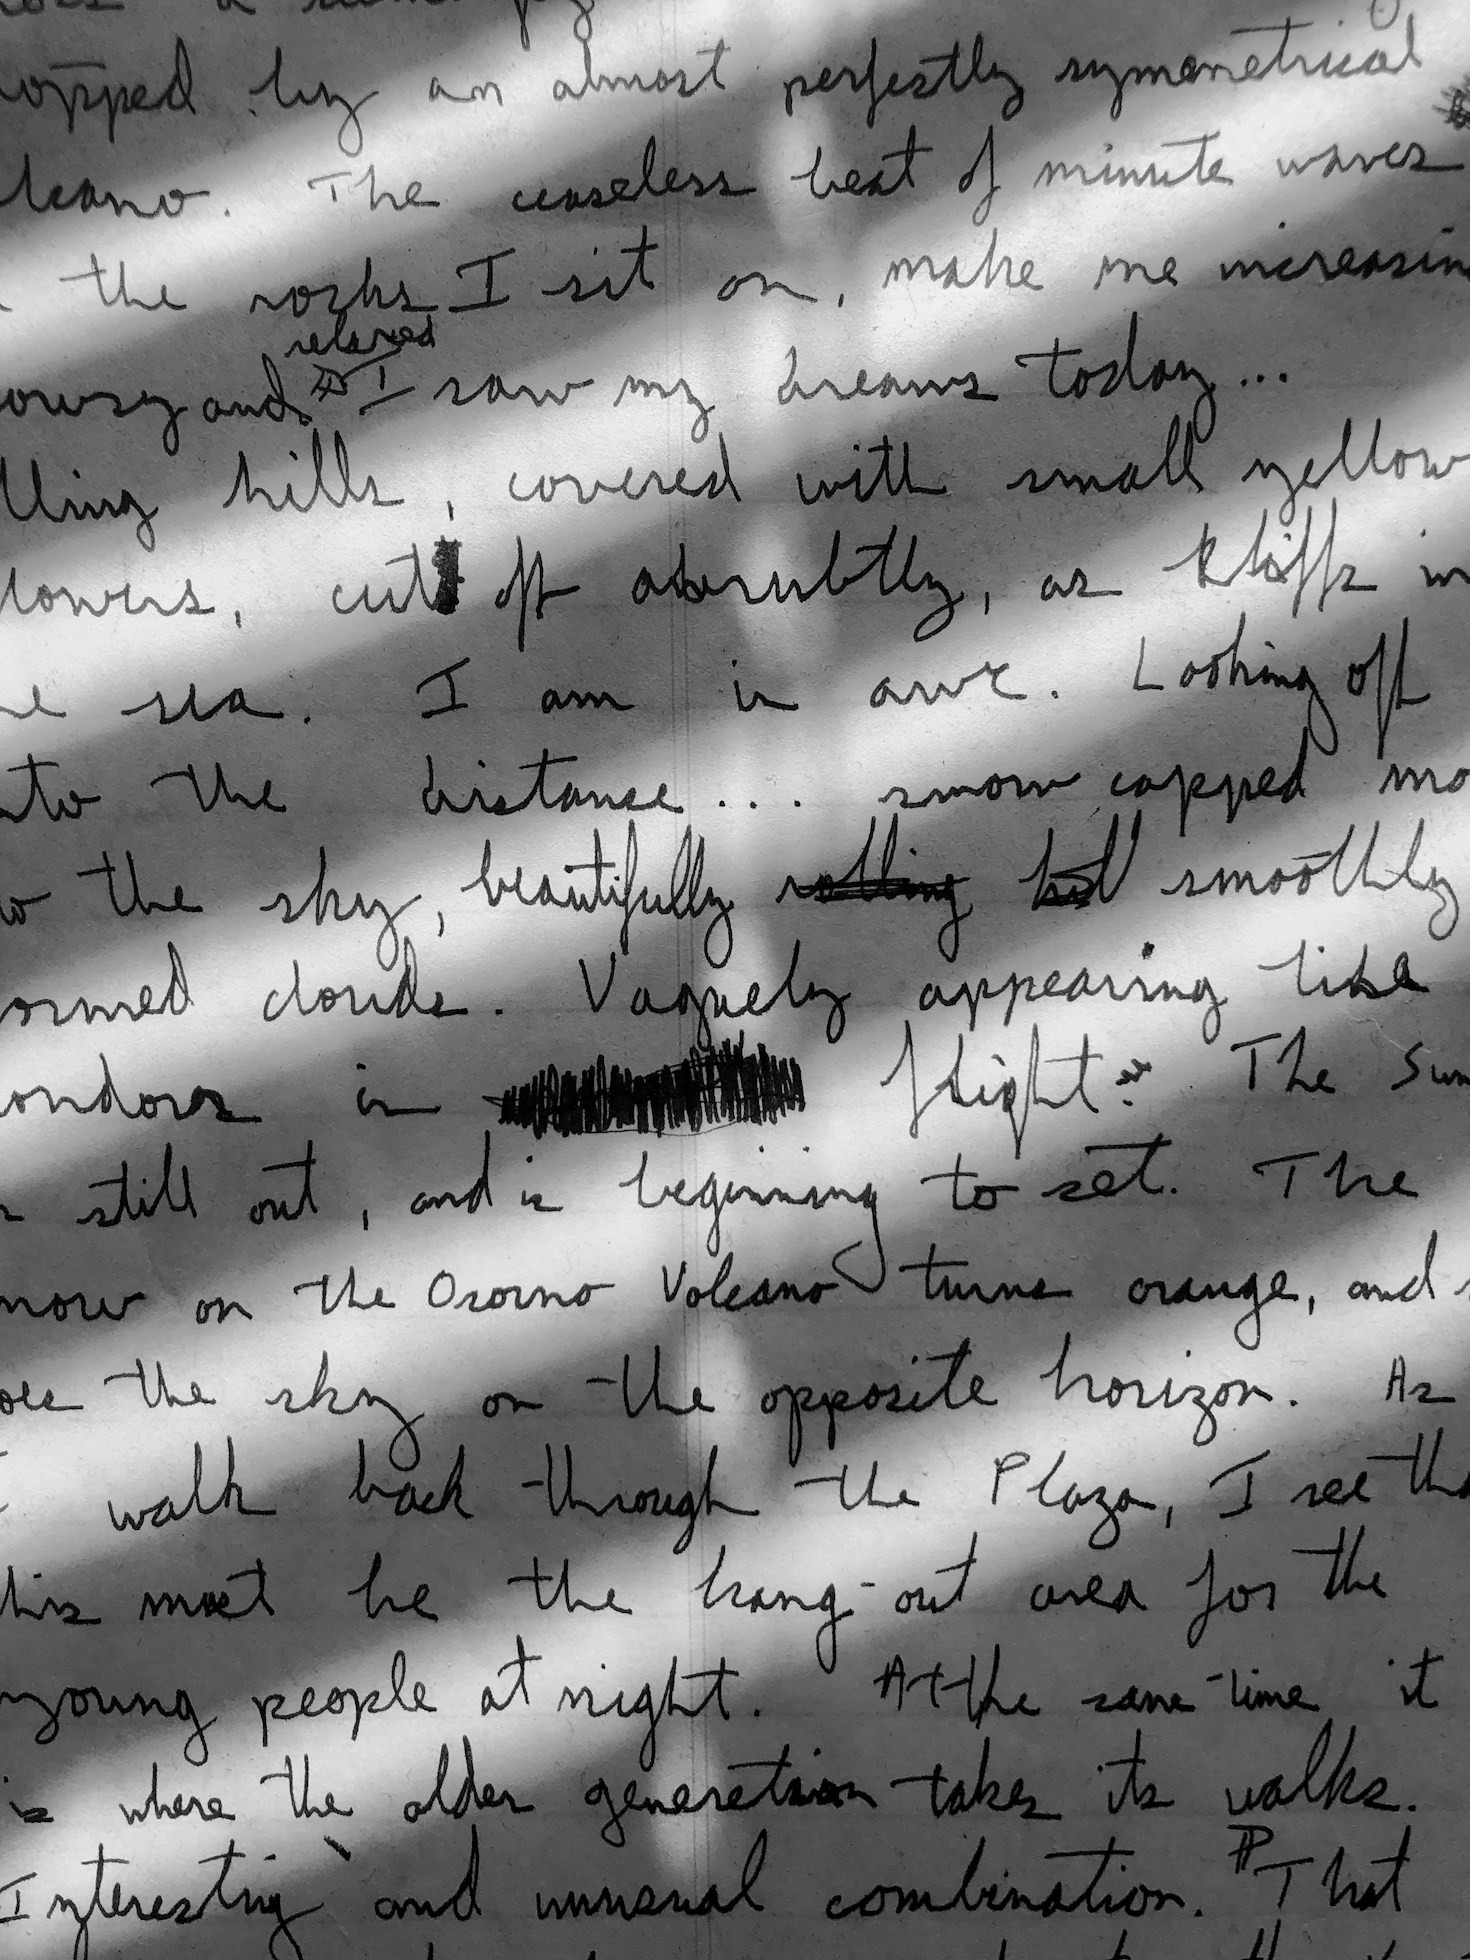 opped by an almost perfectly symmetrical
lcano. The ceaseless beat of minute waves
the rocks I sit on, make me increasin
relaxed
owsy and I saw my dreams today...
lling hills, covered with small yellow
lowers, cut off abrubtly, as kliffs in
e sea. I am in awe. Looking off
nto the distance.... snow capped mo
the sky, beautifully rolling smoothly
ormed clouds. Vaguely appearing like
ondors in flight. The Sun
still out, and is beginning to set. The
now on the Osorno Volcano turns orange, and
oes the sky on the opposite horizon. As
walk back through the Plaza, I see tha
his must be the hang-out area for the
young people at night. At the same time it
is where the older generation takes its walks.
Interesting and unusual combination. That